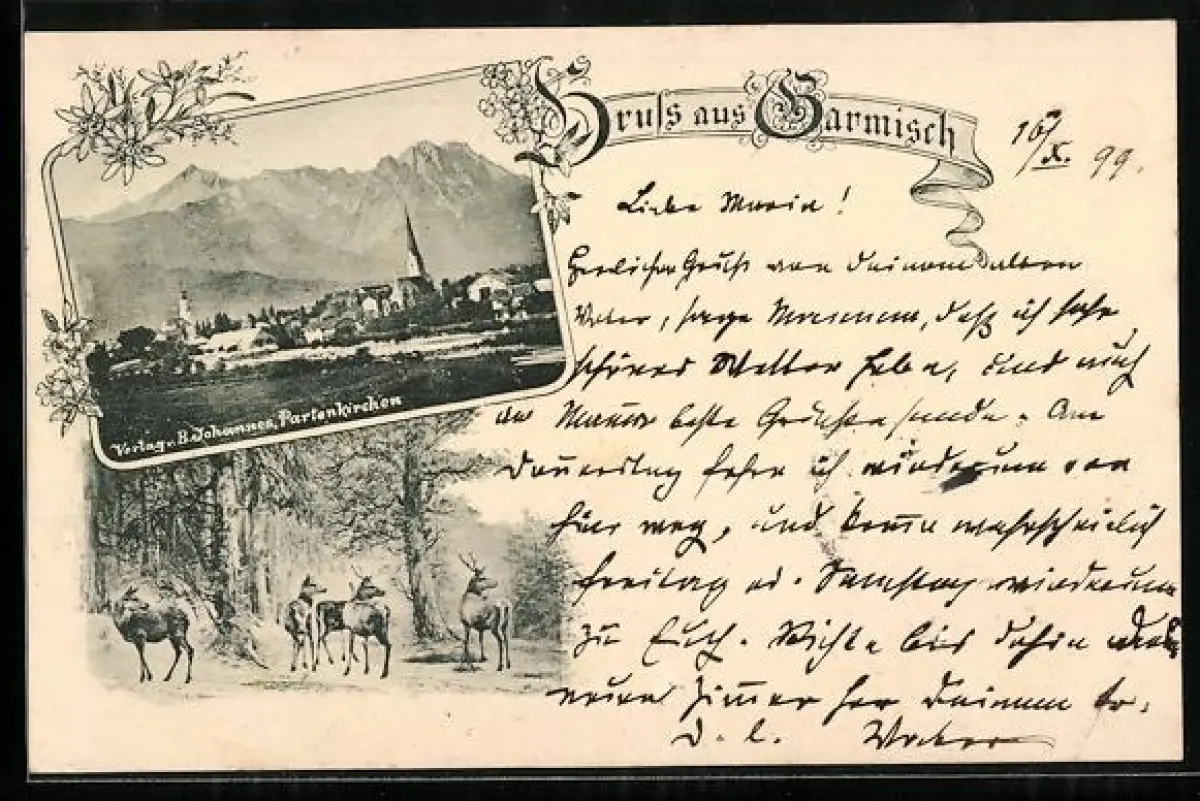 Gruss aus Garmisch
16/X. 99.
Liebe Maria!
Herzlichen Gruß von Deinem alten
Vater, sage Mamma, daß ich sehr
schönes Wetter habe, und auch
der Mama beste Grüße sende. Am
Donnerstag fahre ich wiederum von
hier weg, und komme wahrscheinlich
Freitag od. Samstag wiederum
zu Euch. Richte bis dahin
neues Zimmer her Deinem tr.
D. l. Vater
Verlag v. B. Johannes, Partenkirchen